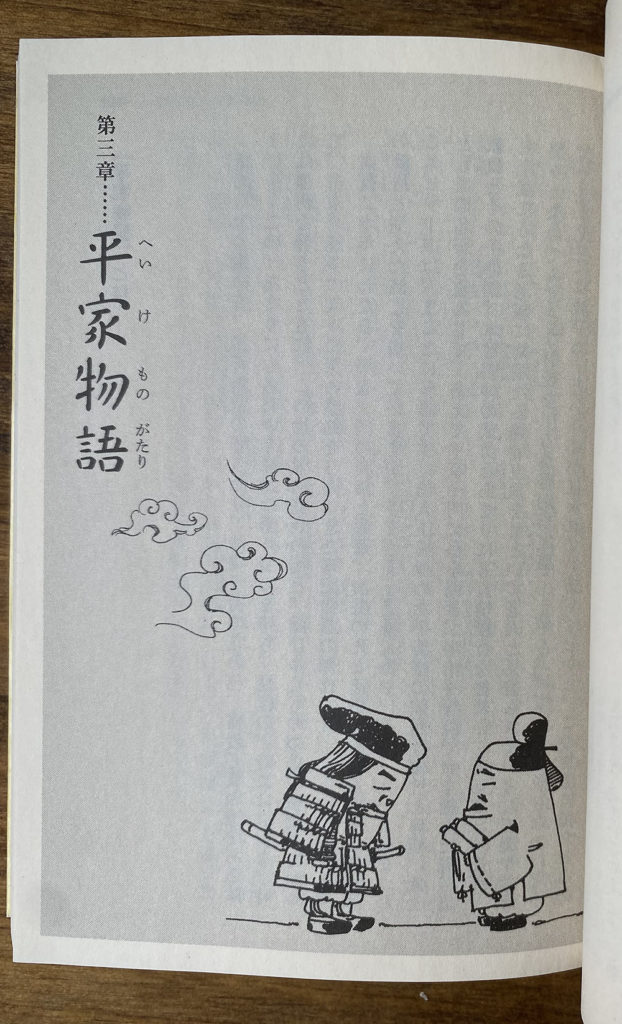 第三章……平家物語
へいけものがたり